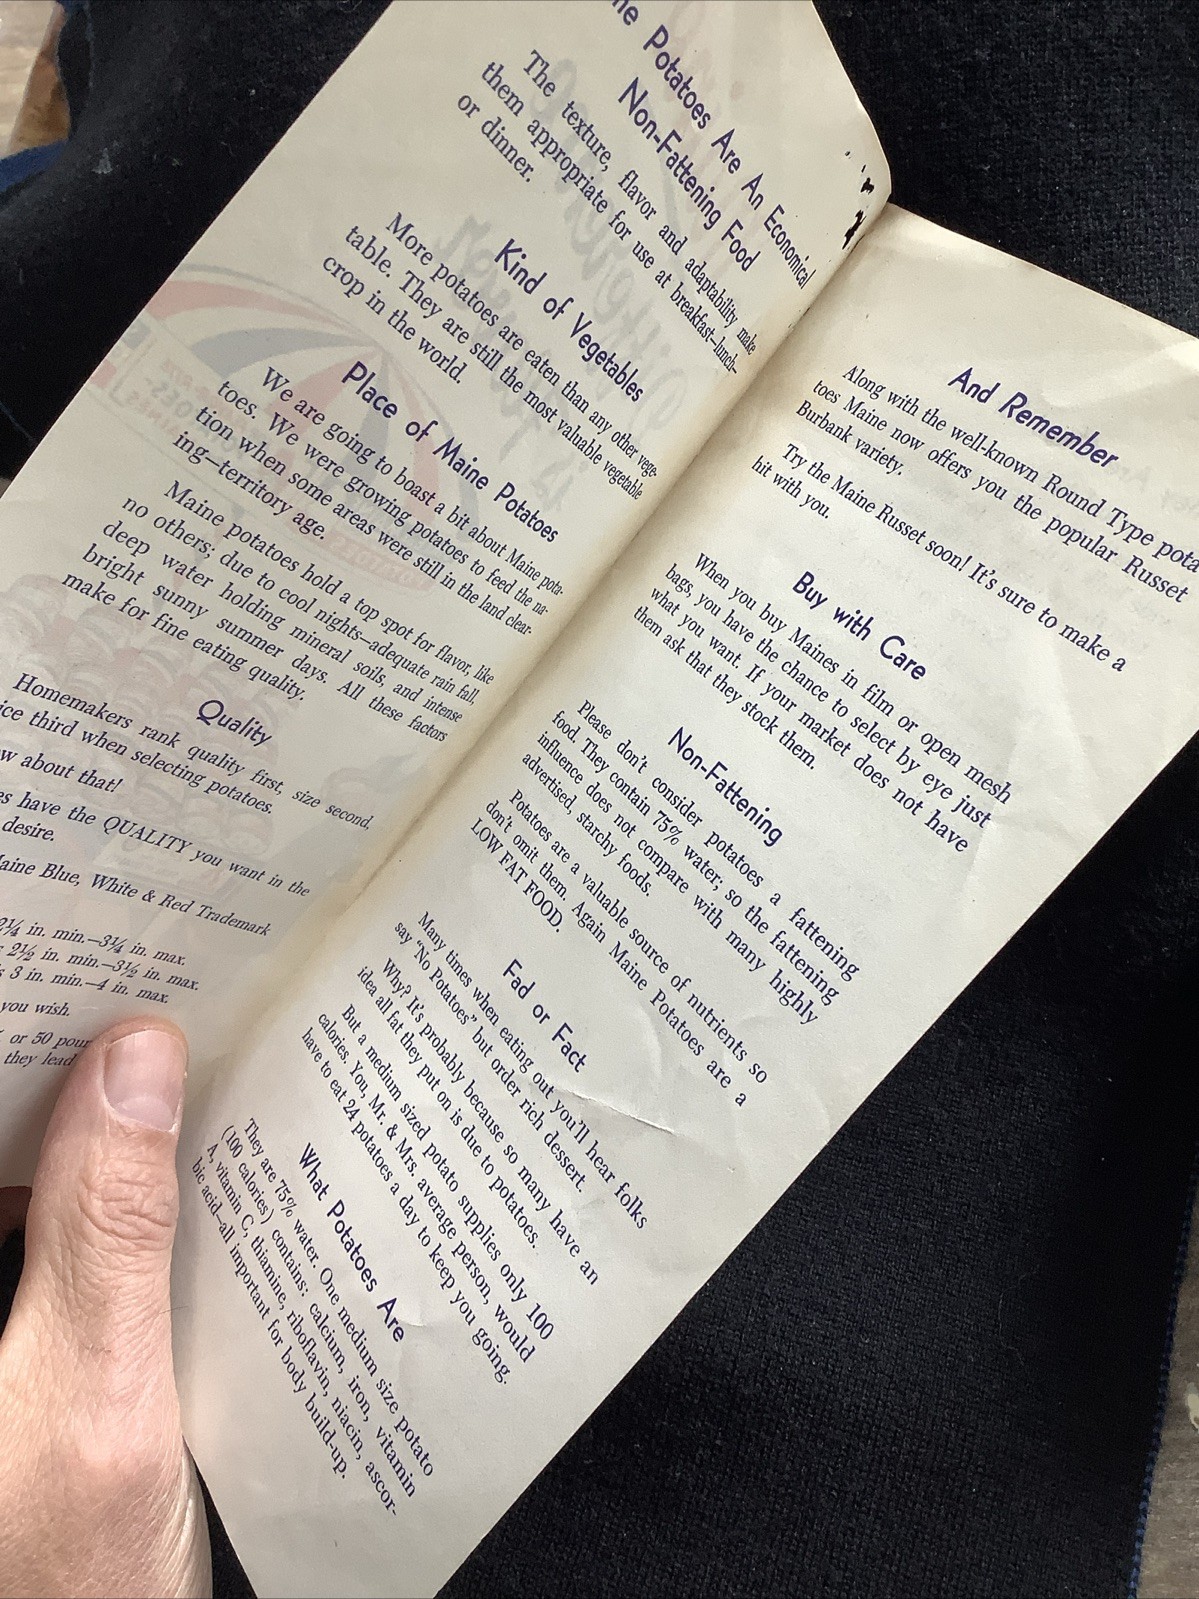 ne Potatoes Are An Economical
Non-Fattening Food
The texture, flavor and adaptability make
them appropriate for use at breakfast—lunch—
or dinner.
Kind of Vegetables
More potatoes are eaten than any other vege-
table. They are still the most valuable vegetable
crop in the world.
Place of Maine Potatoes
We are going to boast a bit about Maine pota-
toes. We were growing potatoes to feed the na-
tion when some areas were still in the land clear-
ing—territory age.
Maine potatoes hold a top spot for flavor, like
no others; due to cool nights—adequate rain fall,
deep water holding mineral soils, and intense
bright sunny summer days. All these factors
make for fine eating quality.
Quality
Homemakers rank quality first, size second,
ice third when selecting potatoes.
w about that!
es have the QUALITY you want in the
desire.
aine Blue, White & Red Trademark
2¼ in. min.—3¼ in. max.
2½ in. min.—3½ in. max.
s 3 in. min.—4 in. max.
you wish.
or 50 pour
they lead
And Remember
Along with the well-known Round Type pota
toes Maine now offers you the popular Russet
Burbank variety.
Try the Maine Russet soon! It's sure to make a
hit with you.
Buy with Care
When you buy Maines in film or open mesh
bags, you have the chance to select by eye just
what you want. If your market does not have
them ask that they stock them.
Non-Fattening
Please don't consider potatoes a fattening
food. They contain 75% water; so the fattening
influence does not compare with many highly
advertised, starchy foods.
Potatoes are a valuable source of nutrients so
don't omit them. Again Maine Potatoes are a
LOW FAT FOOD.
Fad or Fact
Many times when eating out you'll hear folks
say "No Potatoes" but order rich dessert.
Why? It's probably because so many have an
idea all fat they put on is due to potatoes.
But a medium sized potato supplies only 100
calories. You, Mr. & Mrs. average person, would
have to eat 24 potatoes a day to keep you going.
What Potatoes Are
They are 75% water. One medium size potato
(100 calories) contains: calcium, iron, vitamin
A, vitamin C, thiamine, riboflavin, niacin, ascor-
bic acid—all important for body build-up.